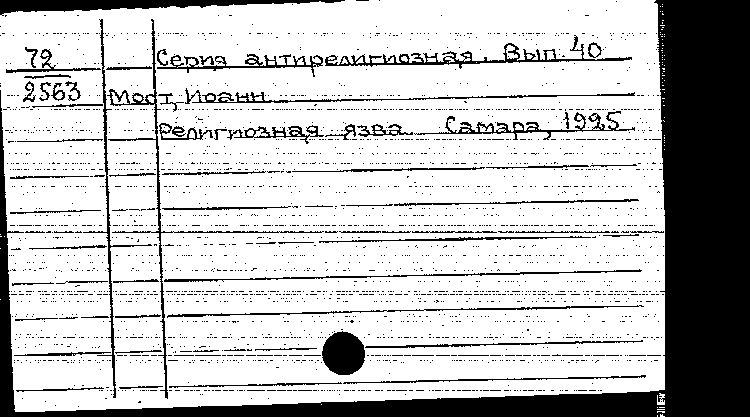 72 Серия антирелигиозная. Вып. 40
2563 Мост, Иоанн
Религиозная язва Самара, 1925